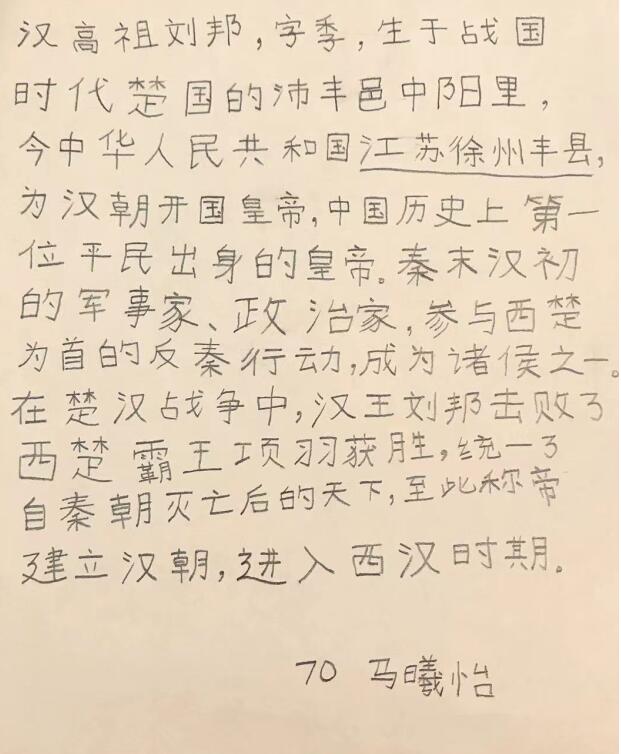 汉高祖刘邦，字季，生于战国
时代楚国的沛丰邑中阳里，
今中华人民共和国江苏徐州丰县，
为汉朝开国皇帝，中国历史上第一
位平民出身的皇帝。秦末汉初
的军事家、政治家，参与西楚
为首的反秦行动，成为诸侯之一。
在楚汉战争中，汉王刘邦击败了
西楚霸王项羽获胜，统一了
自秦朝灭亡后的天下，至此称帝
建立汉朝，进入西汉时期。
70 马曦怡